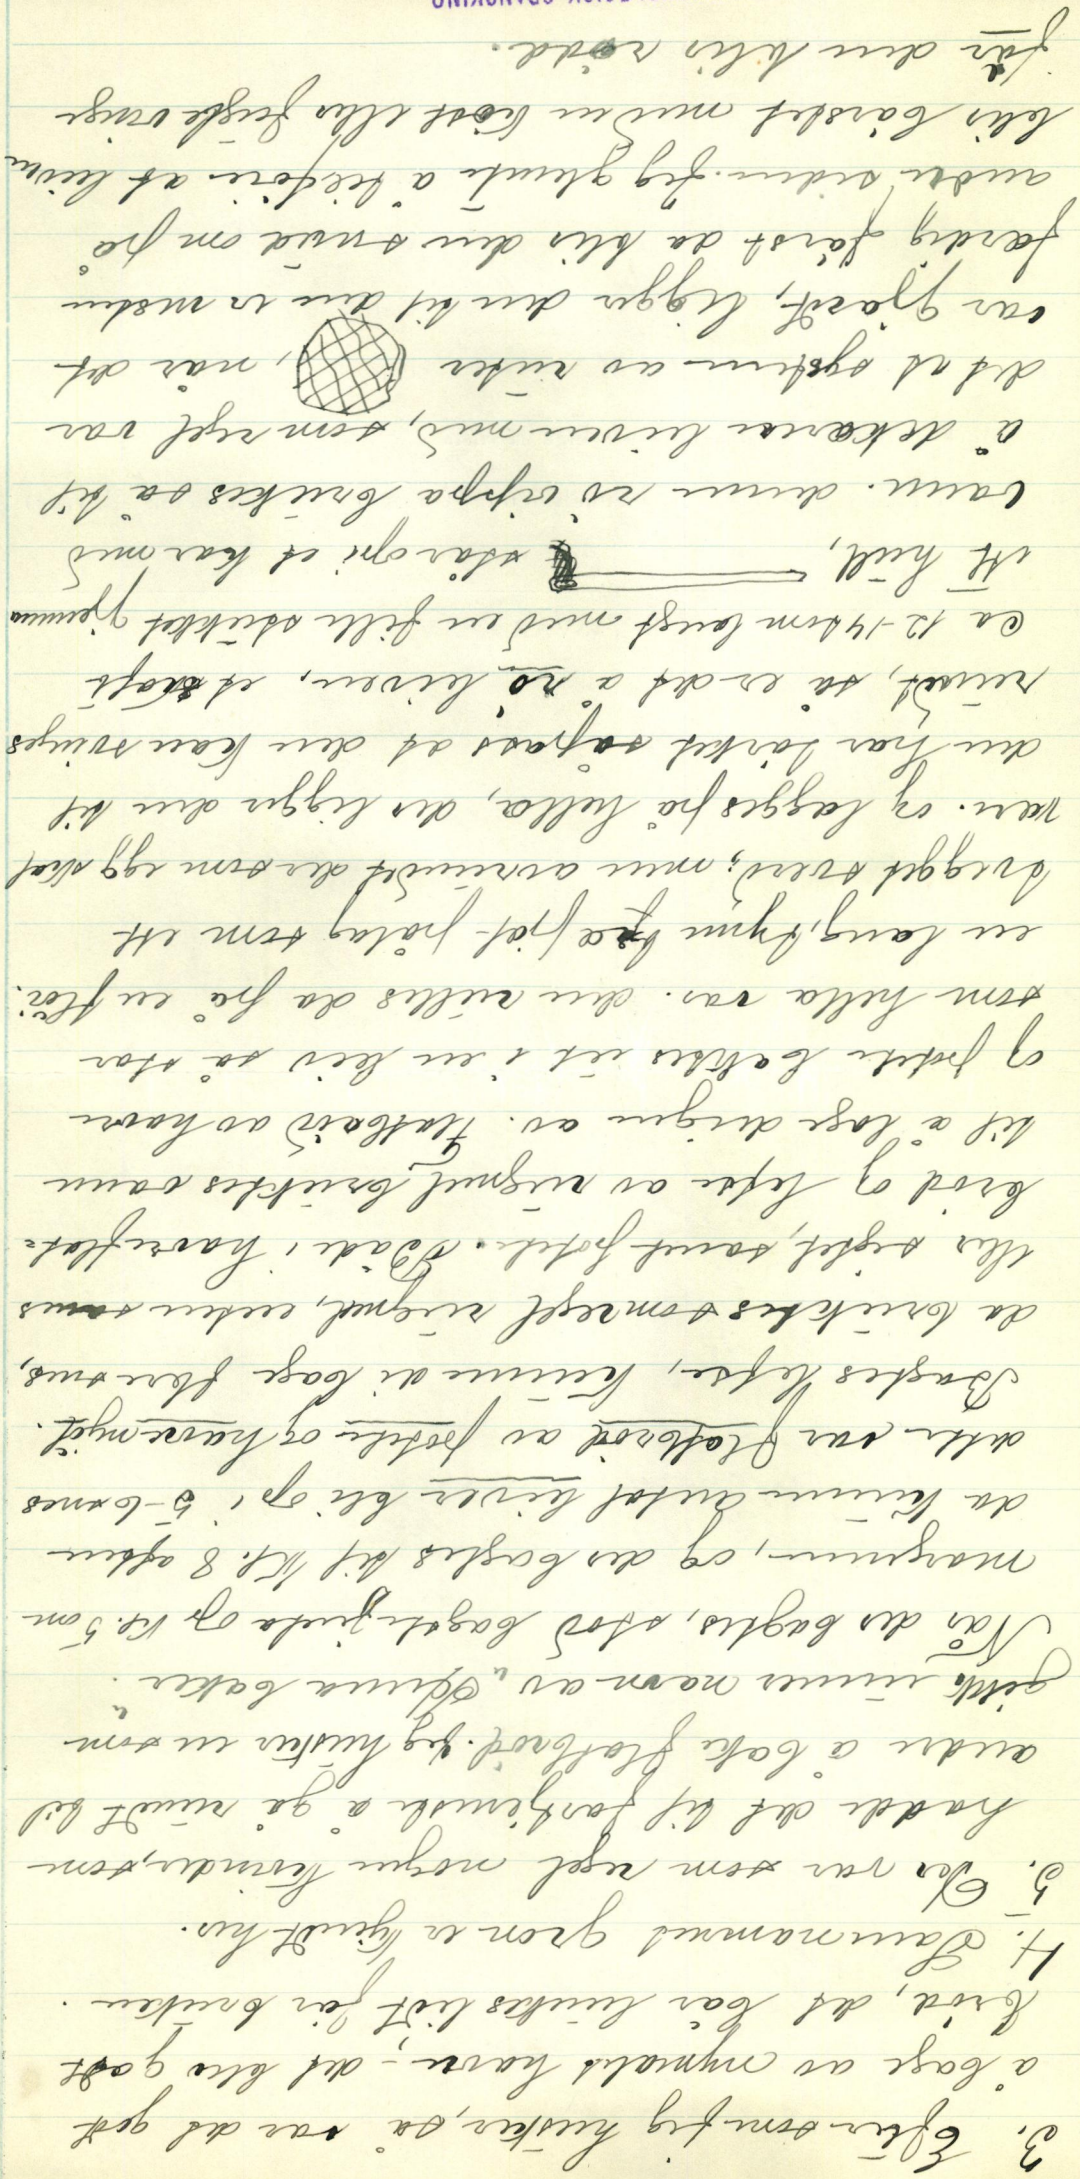 3. Efter som jeg husker, så var det godt
å bage av nymalt havre, – det blev godt
brød, det bør lunkes lidt før bruken.
4. Sammanned grøn er kjendt her.
5. Der var som regel nogen kvinder, som
hadde det til fortjeneste å gå rundt til
andre å bake flatbrød. Jeg husker en som
gikk under navn av „Anna baker".
Når der bagtes, stod bagstejenta op kl. 5 om
morgenen, og der bagtes til kl. 8 aften
da kunne antal leiver bli op i 5-6 snes
dette var flatbrød av potete og havremjøl.
Bagtes lefse, kunne di bage flere snes,
da bruktes som regel rugmel, enten sams
eller sigtet, samt potete. Både i havreflat-
brød og lefse av rugmel bruktes vann
til å lage deigen av. Flatbrød av havre
og potete bakses ut i en leiv så stor
som hella var. den rulles da på en fløi.
en lang, tynn fjøl på lag som ett
tvegget sverd; men avrundet der som egg skal
være. og lægges på hella, der ligger den til
den har tørket såpass at den kan svinges
rundt, så er det å rø leiven, et skaft
ca 12-14 tom langt med en fille stukket gjennem
ett hull, står opi et kar med
vann. denne røvippa brukes så til
å dekorere leiven med, som regel var
det et system av ruter , når det
var gjordt, ligger den til den er nesten
færdig først da blir den snudd om på
andre siden. Jeg glemte å tilføie at leiven
blir børstet med en kost eller fugle vinge
før den blir rødd.